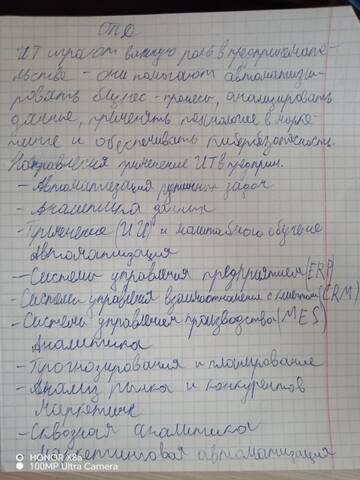 ОПД
ИТ играют важную роль в предпринимате-
льстве - они помогают автоматизи-
ровать бизнес - процессы, анализировать
данные, применять технологие в марке-
тинге и обеспечивать кибербезопасность.
Направления применение ИТ в предприн.
- Автоматизация рутинных задач
- Аналитика данных
- Применение (ИИ) и машинного обучение
Автоматизация
- Системы управления предприятием (ERP)
- Системы управления взаимоотношение с клиентом (CRM)
- Системы управлением производства (MES)
Аналитика
- Прогнозирования и планирование
- Анализ рынка и конкурентов
Маркетинг
- Сквозная аналитика
- Маркетинговая автоматизация
HONOR X8a
100MP Ultra Camera